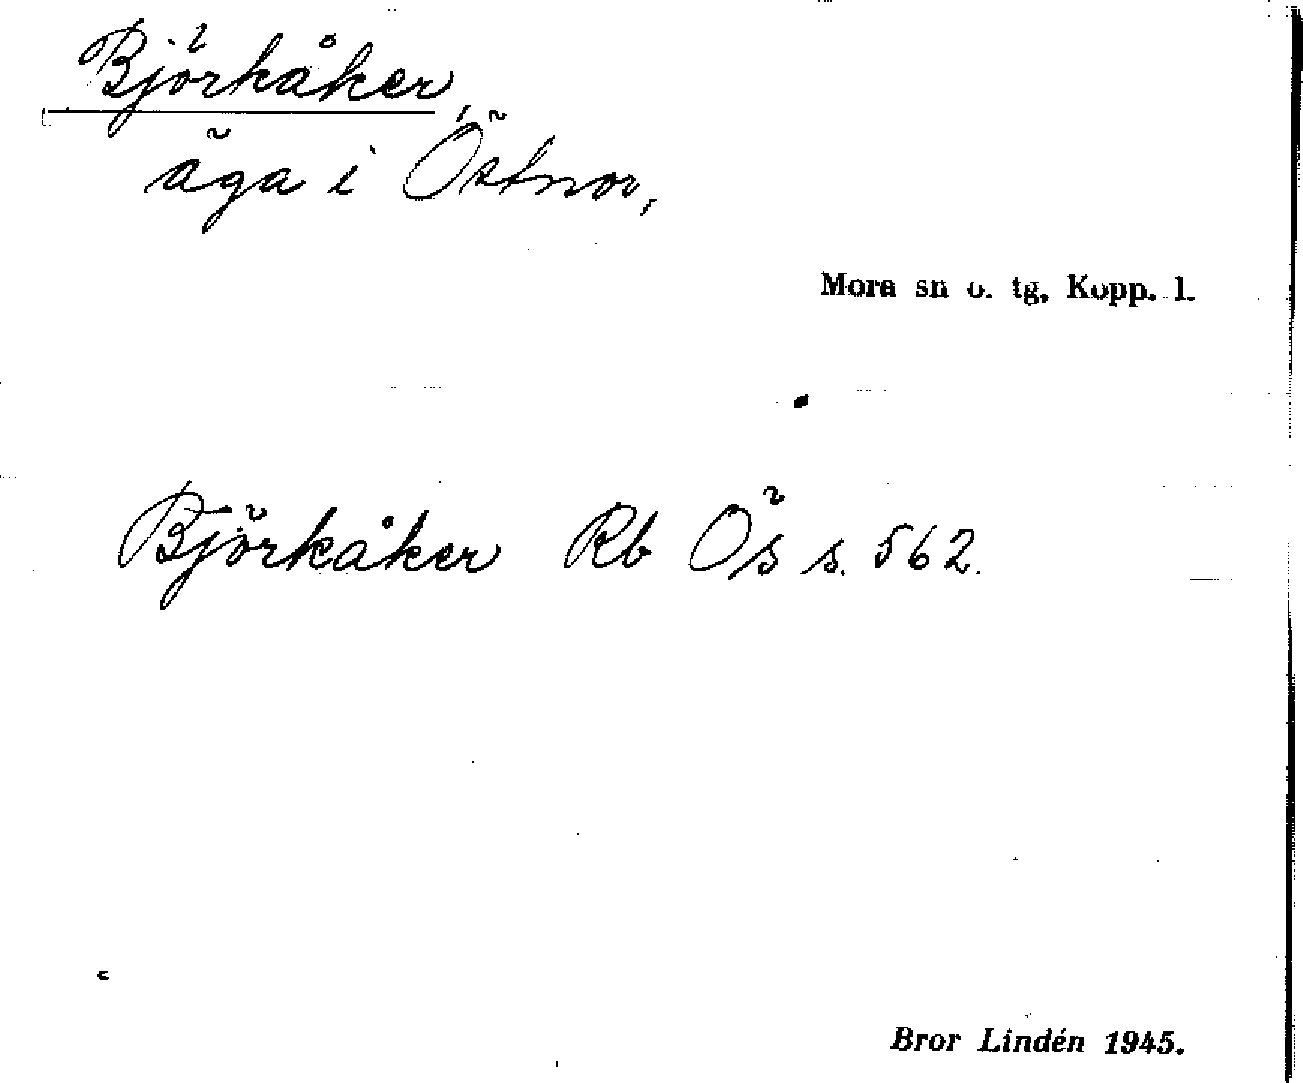 Björkåker,
äga i Östnor,
Mora sn o. tg, Kopp. l.
Björkåker Rb Ös s. 562.
Bror Lindén 1945.